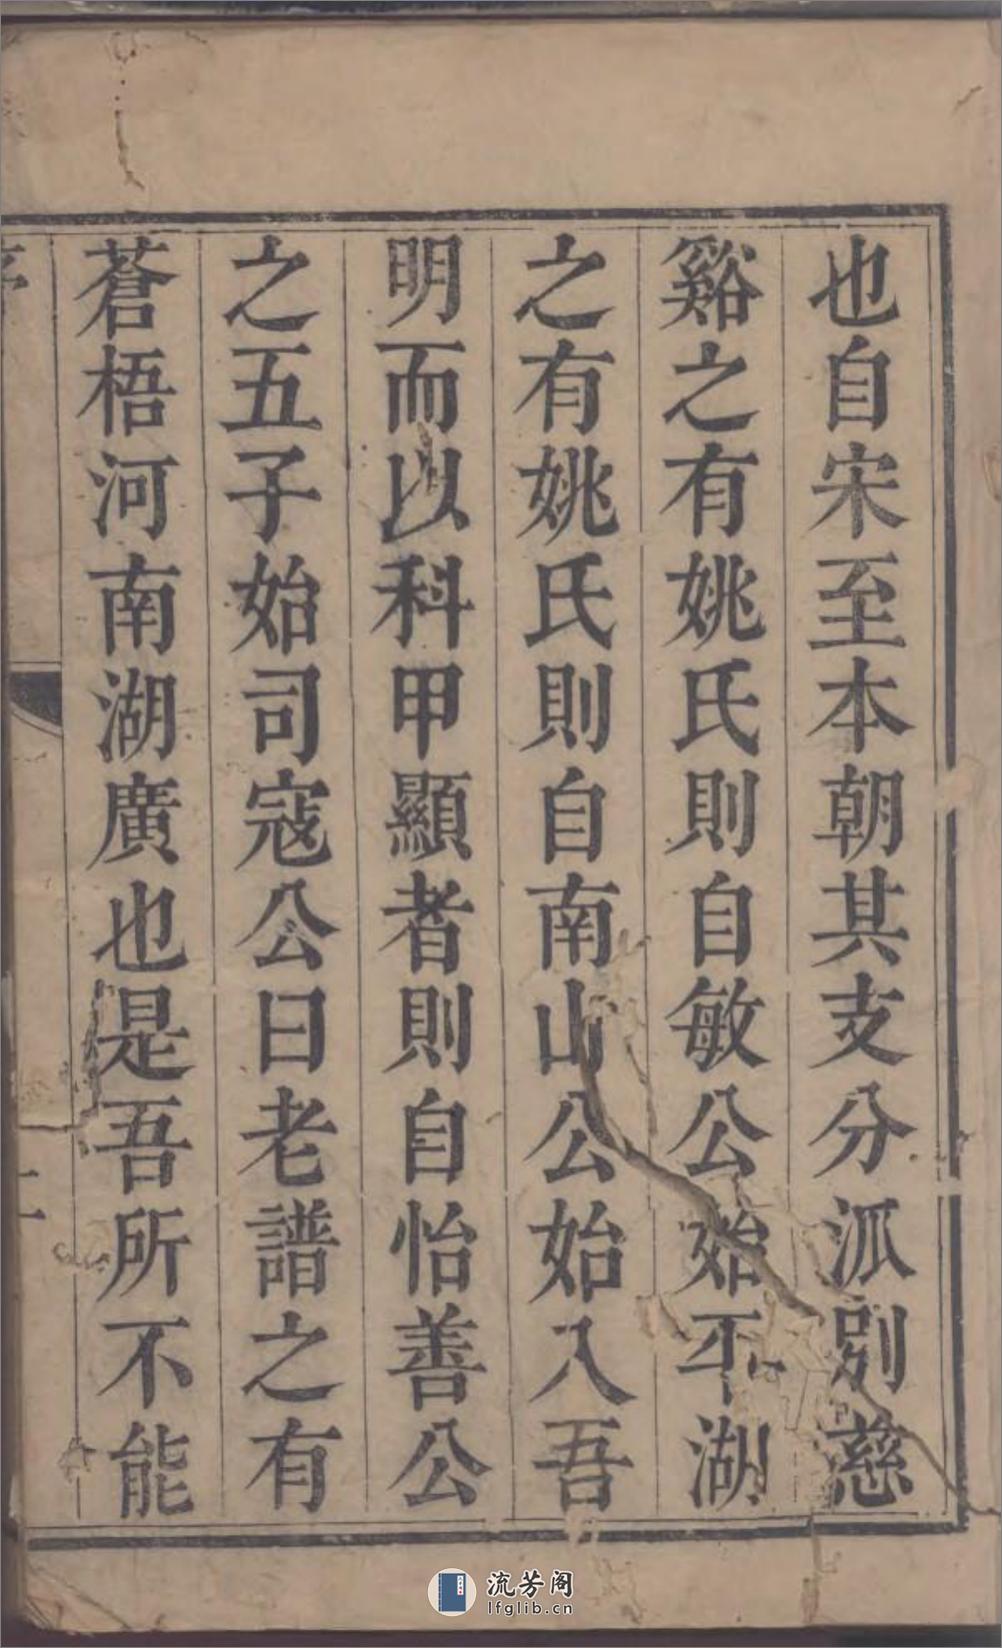 也自宋至本朝其支分派別慈
谿之有姚氏則自敏公始平湖
之有姚氏則自南山公始入吾
明而以科甲顯者則自怡善公
之五子始司寇公曰老譜之有
蒼梧河南湖廣也是吾所不能
序
二
流芳阁
lfglib.cn